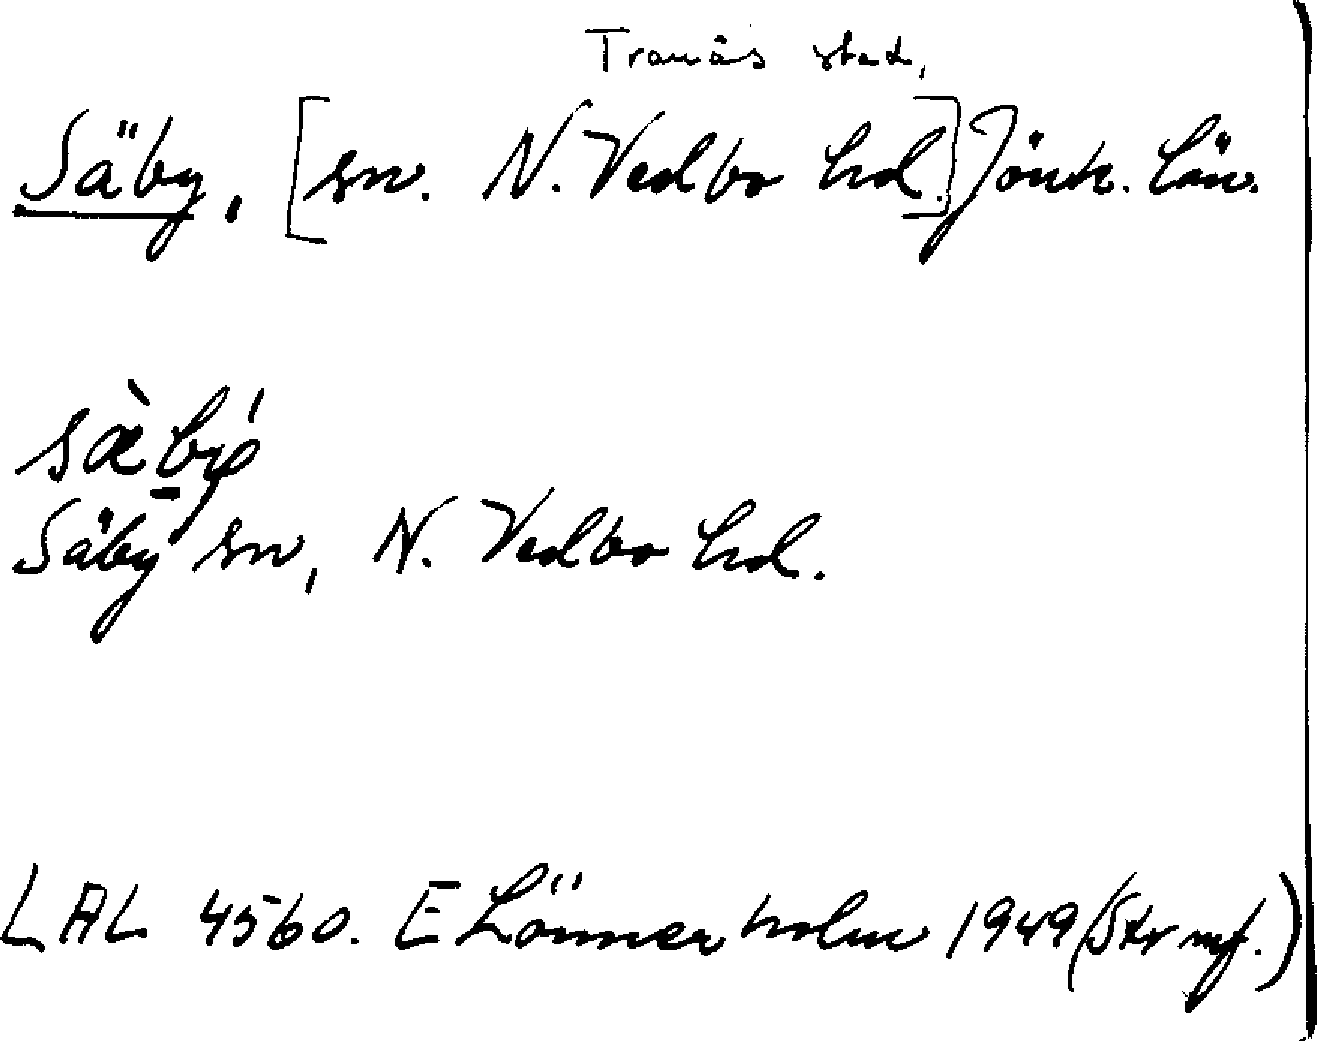 Tranås stad,
Säby, [sn. N. Vedbo hd.] Jönk. län.
sæ̀bý
Säby sn, N. Vedbo hd.
LAL 4560. E Lönnerholm 1949 (Str nyf.)